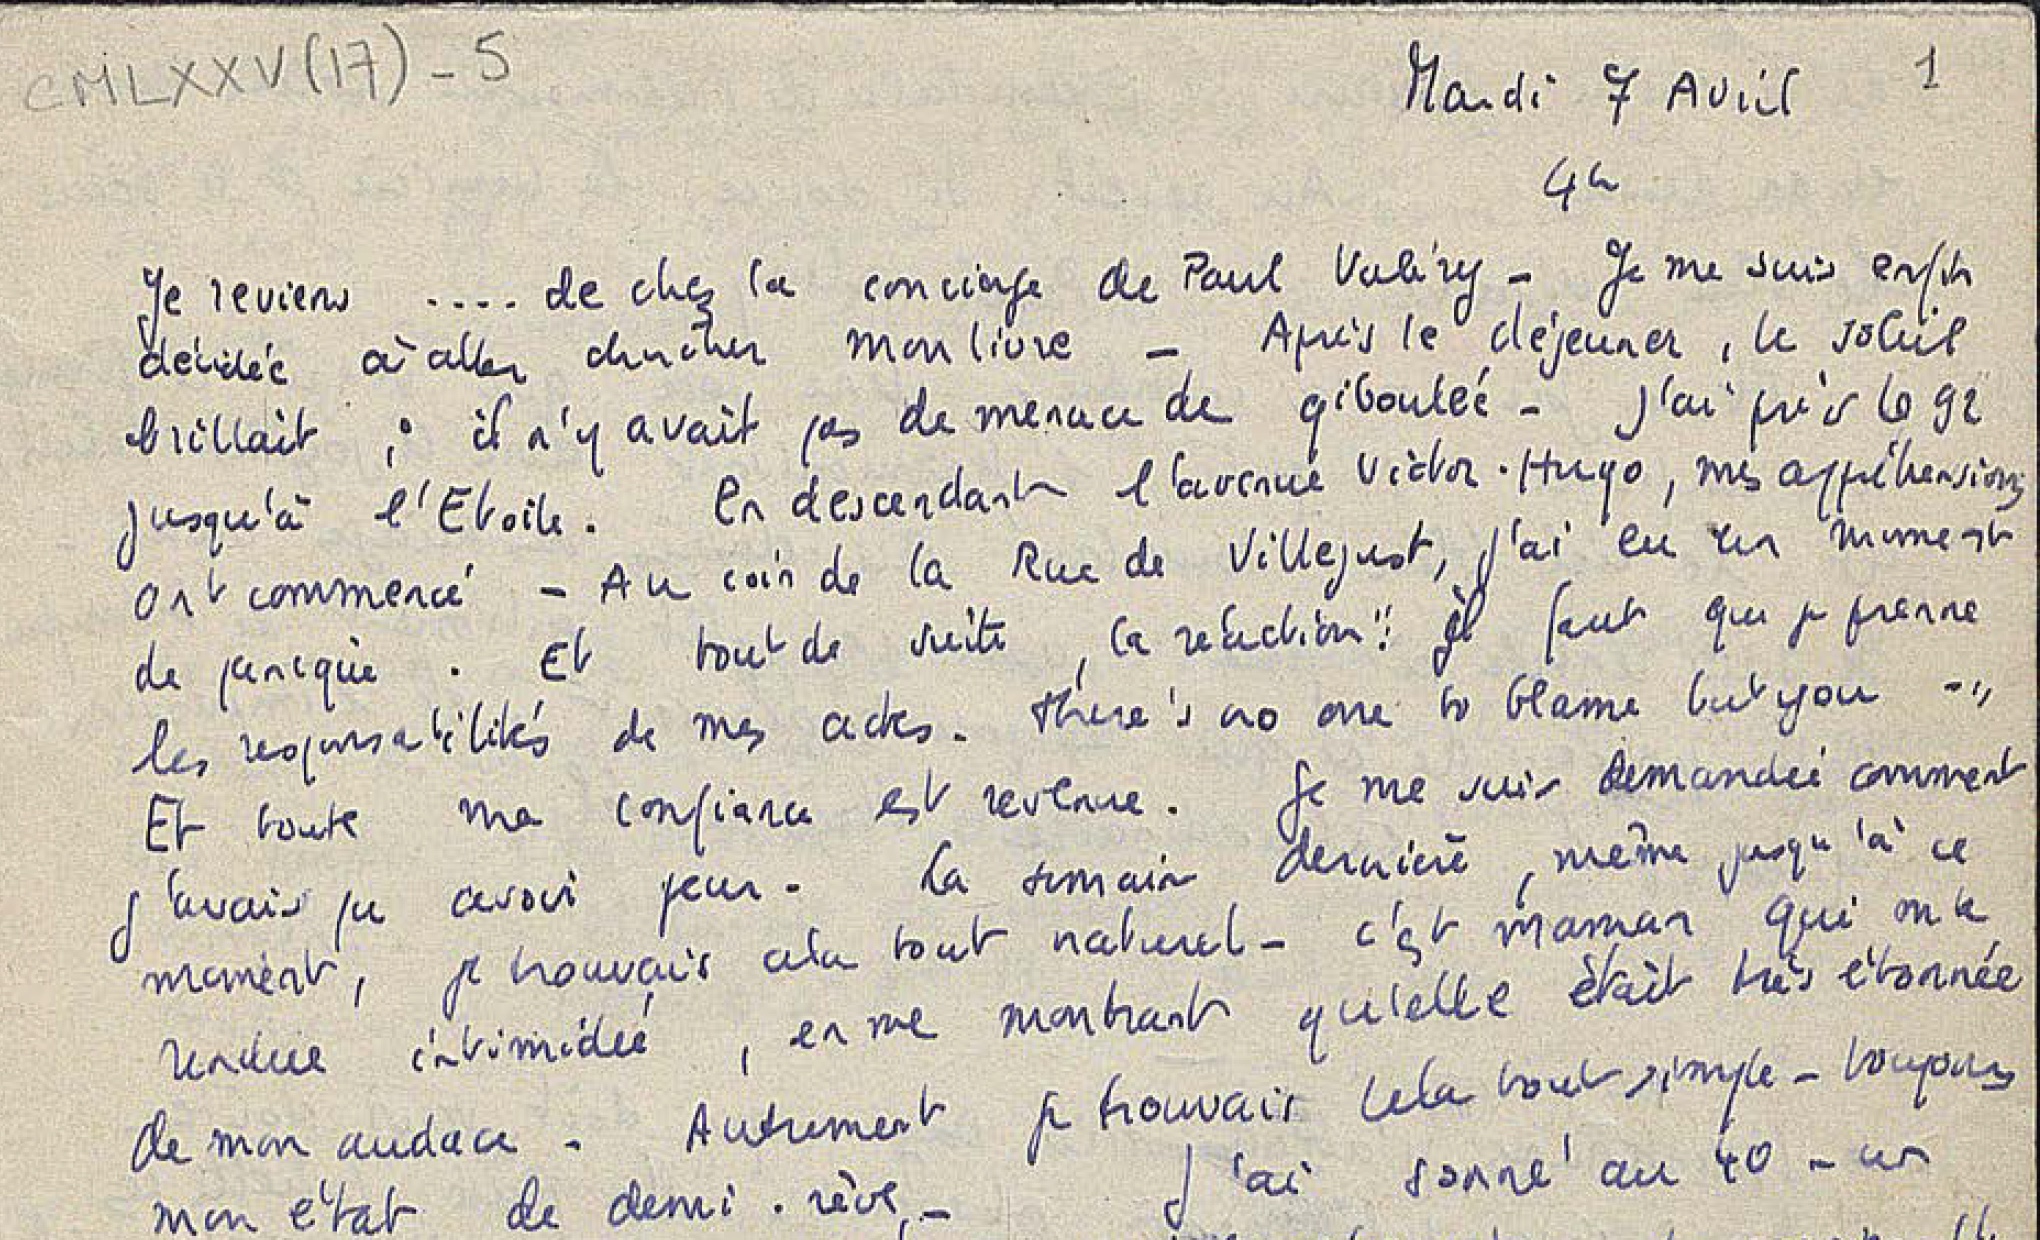 CMLXXV(17)-5
Mardi 7 Avril 1
4h
Je reviens .... de chez la concierge de Paul Valéry - Je me suis enfin
décidée à aller chercher mon livre - Après le déjeuner, le soleil
brillait ; il n'y avait pas de menace de giboulée - J'ai pris le 92
jusqu'à l'Etoile. En descendant l'avenue Victor-Hugo, mes appréhensions
ont commencé - Au coin de la Rue de Villejust, j'ai eu un moment
de panique. Et tout de suite, la réaction : " il faut que je prenne
les responsabilités de mes actes. There's no one to blame but you - "
Et toute ma confiance est revenue. Je me suis demandée comment
j'avais pu avoir peur. La semaine dernière, même jusqu'à ce
moment, je trouvais cela tout naturel - c'est maman qui m'a
rendue intimidée, en me montrant qu'elle était très étonnée
de mon audace - Autrement je trouvais cela tout simple - toujours
mon état de demi-rêve, - J'ai sonné au 40 - un